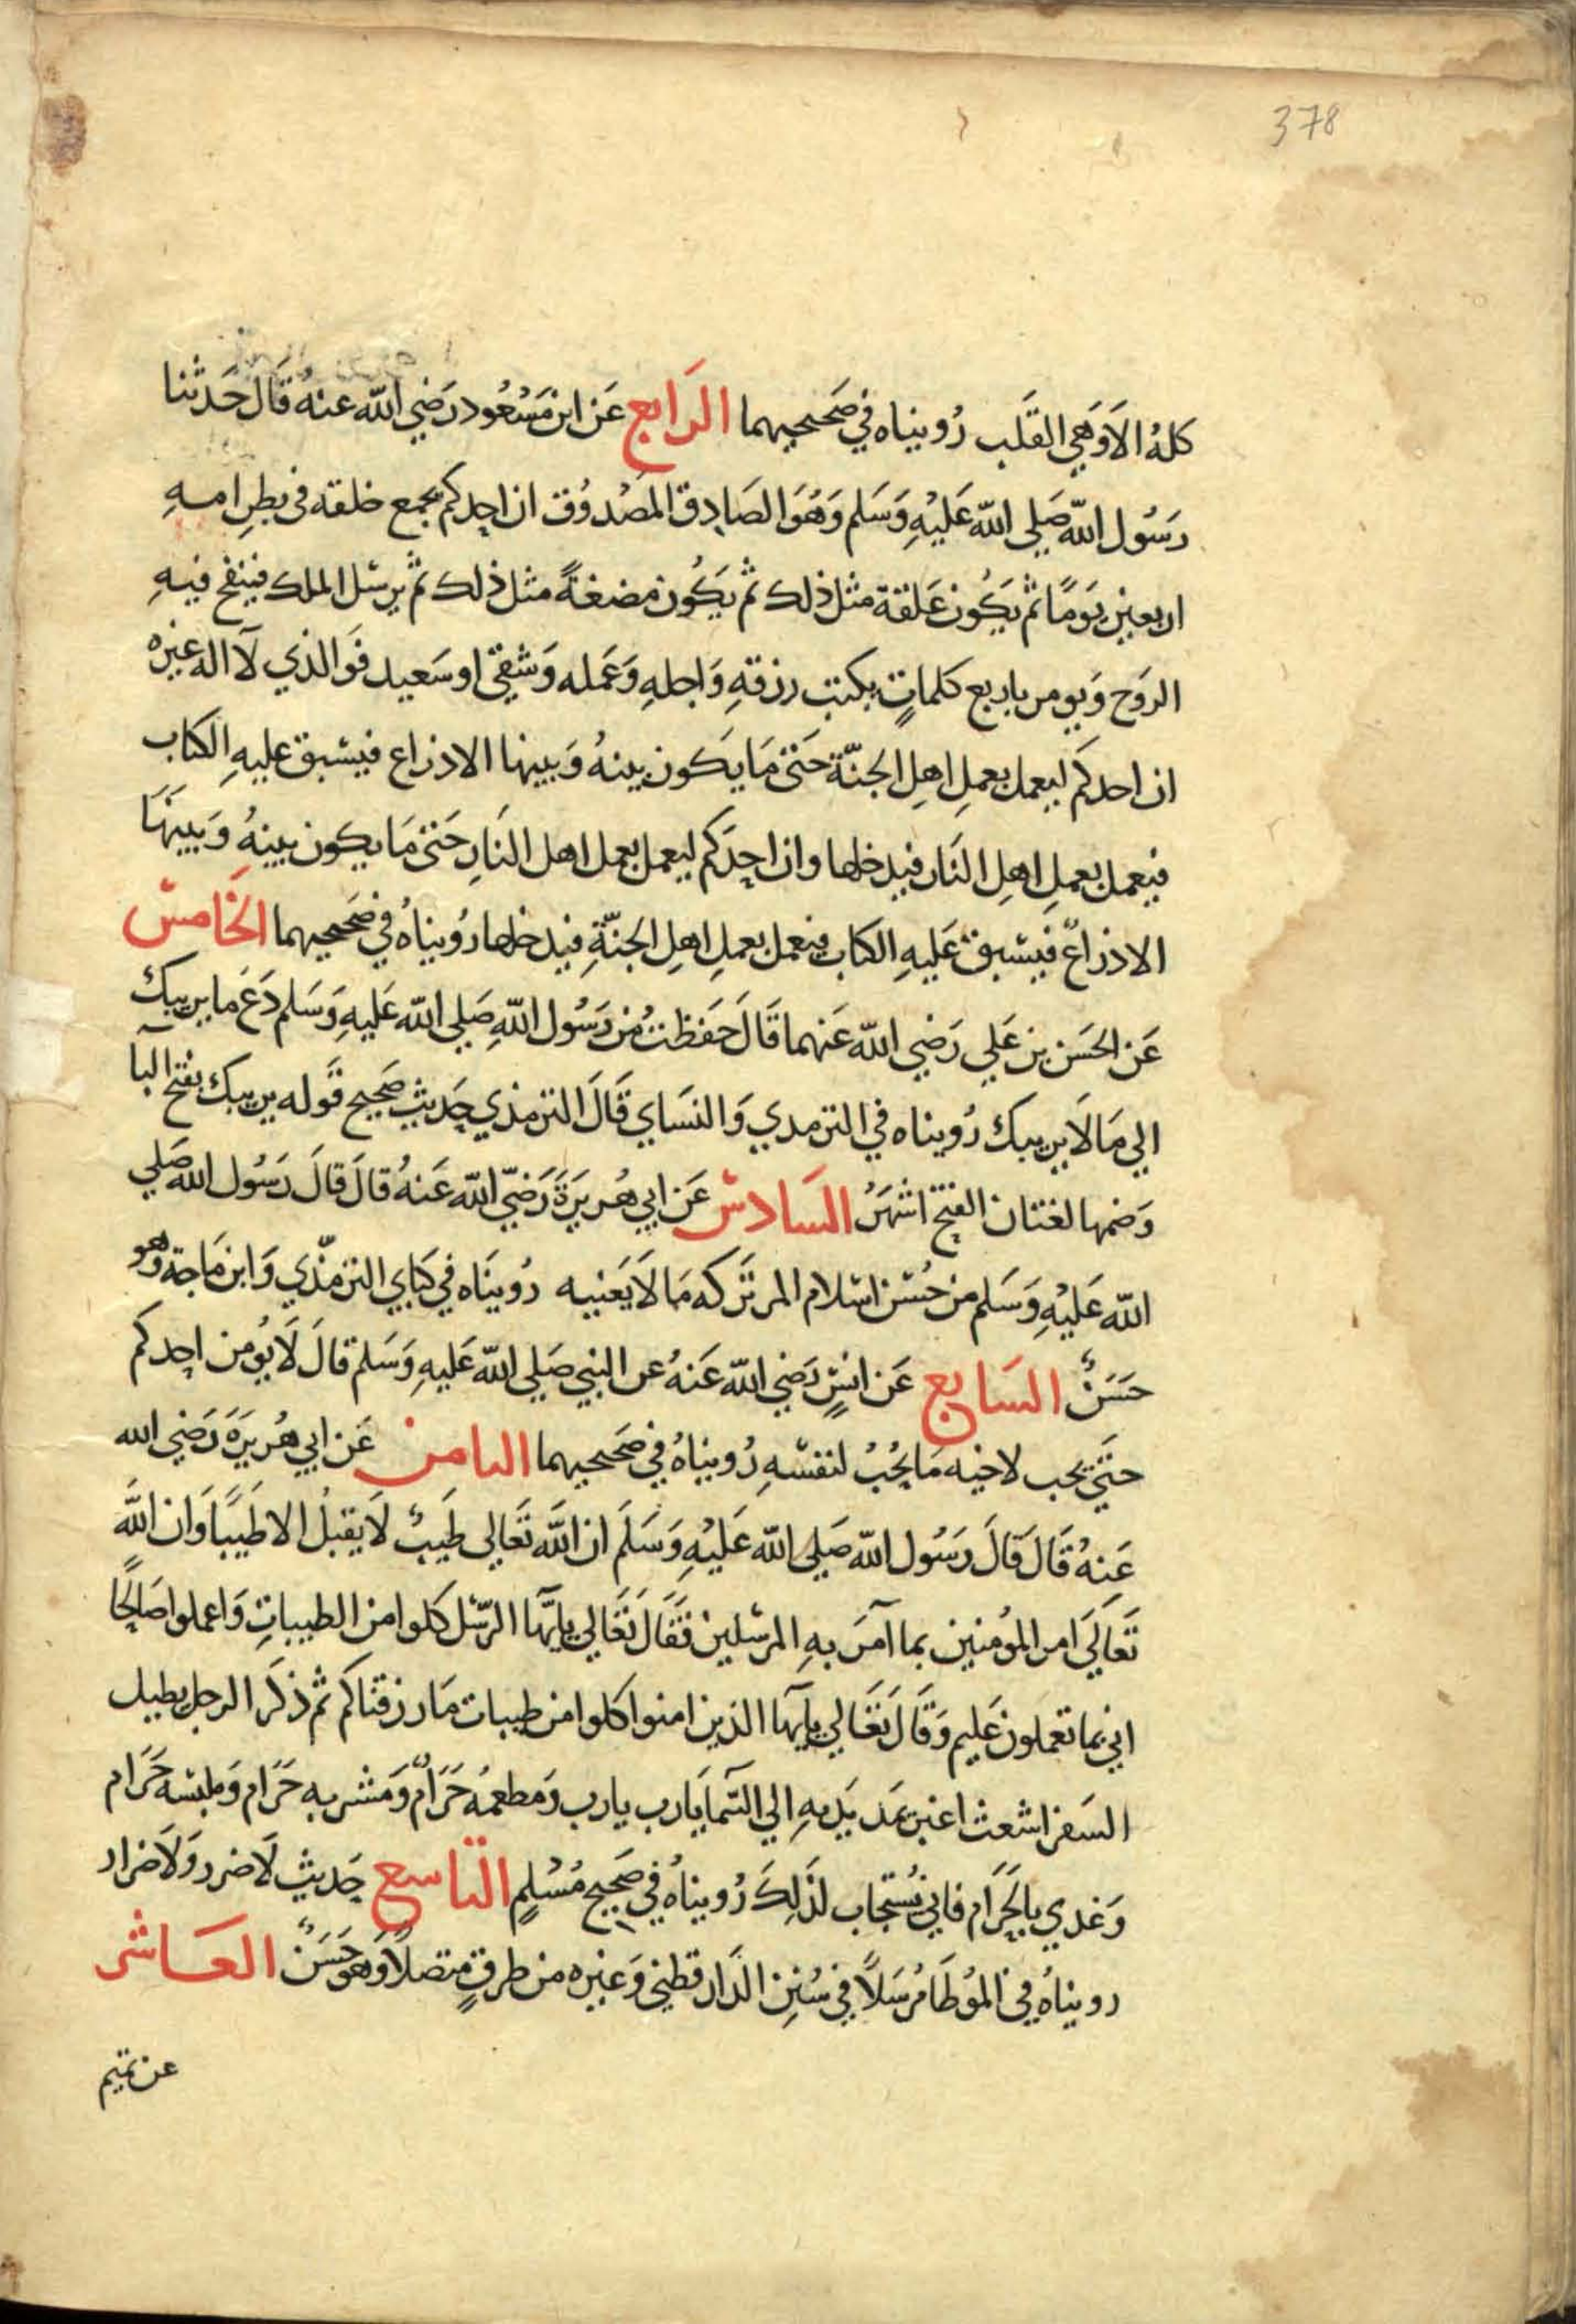 378
كلهُ الاَوَهَي القَلب رُويناه في صَحيحيهما الرَابع عَن ابن مَسْعُود رَضي الله عنهُ قَال حَدثنا
رسُول الله صَلي الله عَليْهِ وَسَلم وَهُوَ الصَادِق المَصْدوُق ان احِدكم يجمع خلقه فى بطِن امهِ
اربعين يَومًا ثم يَكُون عَلقة مثل ذلك ثم يَكُون مضغةً مثل ذلك ثم يرسَل الملك فينفخ فيهِ
الروَح وَيومر باربع كلماتٍ بكتبِ رزقهِ وَاجلهِ وَعَمله وَشقيّ او سَعيد فَوالذي لاَ اله غيره
ان احدكم ليعمل بعملِ اهلِ الجنّة حَتى مَا يَكون بينهُ وَبينها الا ذراع فيسْبق عليهِ الكتاب
فيعمل بعملِ اهلِ النَار فيدخلها وان احِدَكم ليعمل بعمل اهل النَارِ حَتى مَا يكون بينهُ وَبينهَا
الا ذراعٌ فيسْبق عَليهِ الكتاب فيعمل بعملِ اهلِ الجنّةِ فيدخلها رُويناهُ في صَحيحيهما الخَامس
عَن الحَسَن بن عَلي رَضي الله عَنهما قَالَ حَفَظتُ من رَسُول اللهِ صَلي الله عَليهِ وَسَلم دَعَ ما يريبكَ
الي مَا لاَ يريبك رُويناه في الترمدي وَالنسَاي قَالَ الترمذي حِديث صَحيح قَوله يريبكَ بفتح اليآ
وَضمها لغتان الفتح اشهَرُ السَادس عَن ابي هُريَرَةَ رَضيّ الله عَنهُ قالَ قالَ رَسُول الله صَلي
الله عَليْهِ وَسَلم من حُسْن اسْلام المر تَركه مَا لاَ يَعَنيه رُوينَاه في كتابي الترمّذي وَابن مَاجة وهو
حَسَنٌ السَابع عَن انسٍ رَضي الله عَنهُ عن النبي صَلي الله عَليهِ وَسَلم قالَ لاَ يُومن احِدكم
حتَّي يحب لاخيه مَا يحُبُ لنفسْهِ رُويناهُ في صَحيحيهما الثامن عَن ابي هُريَرَةَ رَضي الله
عَنِهُ قَالَ قَالَ رَسُول الله صَلى الله عَليْهِ وَسَلَم ان الله تَعَالى طَيَبٌ لاَ يقبلُ الا طَيَبًا وَان اللهَ
تَعَالَى امر المؤمنين بما آمَر بهِ المرسْلين فَقَالَ تَعَالي يايّهَا الرّسْل كَلوا من الطيباتِ وَاعملوا صَالحًا
اني بما تعملون عَليم وَقَالَ تَعَالي يايّهَا الذين امنوا كلوا من طيبات مَا رزقنَاكم ثم ذكَر الرجل يطيل
السَفر اشعث اغبر يمَد يَديهِ الي السّمَا يَارب يارب وَمطعمهُ حَرَامٌ وَمَشربه حَرَام وَملبسْه حَرَام
وَغدي بالحَرَام فاني يُسْتجاب لذَلِكَ رُويناهُ في صَحِيح مُسْلمٍ التاسع حَديث لاَ ضرر وَلاَ ضرار
رويناهُ في المُوطَا مُرسَلاً في سُننِ الدَارقطني وَغيره من طرقٍ متصلاً وَهو حَسَنٌ العَاشر
عن تميم